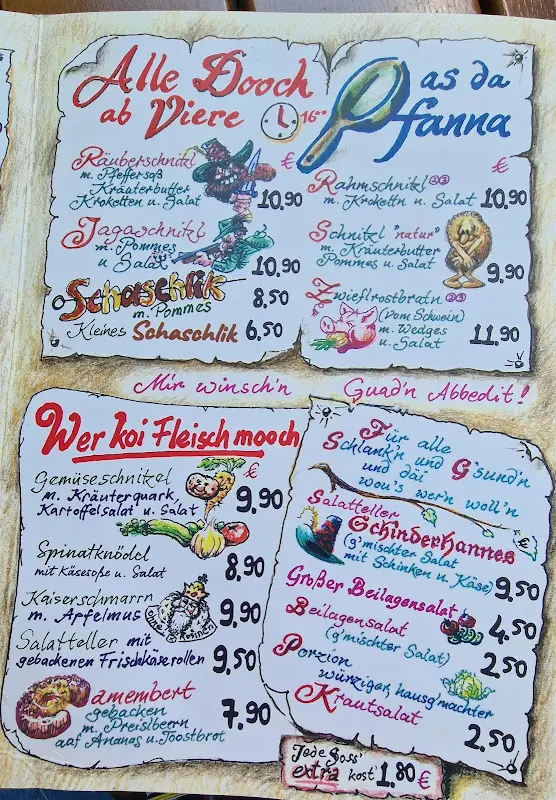 Alle Dooch
ab Viere 16°°
€
Räuberschnitzl
m. Pfeffersoß
Kräuterbutter
Kroketten u. Salat 10,90
Jagaschnitzl
m. Pommes
u. Salat 10,90
Schaschlik 8,50
m. Pommes
Kleines Schaschlik 6,50
as da
Pfanna
€
Rahmschnitzl ②③
m. Kroketten u. Salat 10,90
Schnitzl "natur"
m. Kräuterbutter
Pommes u. Salat 9,90
Zwieflrostbratn ②③
(Vom Schwein)
m. Wedges
u. Salat 11,90
Mir winsch'n Guad'n Abbedit!
Wer koi Fleisch mooch
€
Gemüseschnitzel
m. Kräuterquark,
Kartoffelsalat u. Salat 9,90
Spinatknödel
mit Käsesoße u. Salat 8,90
Kaiserschmarrn
m. Apfelmus 9,90
ohne Rosinen
Salatteller mit
gebackenen Frischkäserollen 9,50
Camembert
gebacken
m. Preislbeern
aaf Ananas u. Toostbrot 7,90
Für alle
Schlank'n und G'sund'n
und däi
wou's wer'n woll'n
Salatteller €
Schinderhannes
(g'mischter Salat
mit Schinken u. Käse) 9,50
Großer Beilagensalat 4,50
Beilagensalat
(g'mischter Salat) 2,50
Porzion
würziger, hausg'machter
Krautsalat 2,50
Jede Soss'
extra kost' 1.80 €